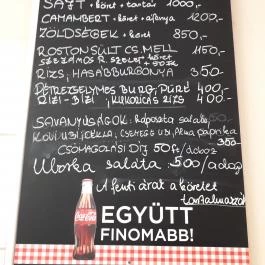 SAJT + köret + tartár 1000,-
CAMAMBERT + köret + áfonya 1200,-
ZÖLDSÉGEK + köret 850,-
ROSTON SÜLT CS. MELL 1150,-
SZEZÁMOS R. SZELET köret
+ 50 Ft
RIZS, HASÁBBURGONYA 350
PETREZSELYMES BURG, PÜRÉ 400,-
RIZI-BIZI, KUKORICÁS RIZS 400
SAVANYÚSÁGOK: káposzta saláta
KOVI UBI, CÉKLA, CSEMEGE UBI, Alma paprika
350-
CSOMAGOLÁSI DÍJ 50 ft/doboz
Uborka saláta 500/adag
A fenti árat a köretet
tartalmazzák
Coca-Cola
EGYÜTT
FINOMABB!